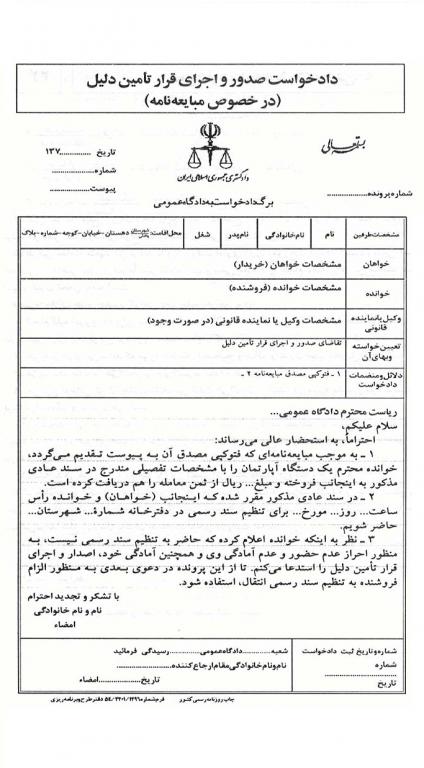 دادخواست صدور و اجرای قرار تأمین دلیل
(در خصوص مبایعه‌نامه)
بسمه تعالی
تاریخ ................ ۱۳۷
شماره....................
پیوست....................
دادگستری جمهوری اسلامی ایران
شماره پرونده....................
برگ دادخواست به دادگاه عمومی
مشخصات طرفین نام نام خانوادگی نام پدر شغل محل اقامت: شهرستان بخش دهستان - خیابان - کوچه - شماره - پلاک
خواهان مشخصات خواهان (خریدار)
خوانده مشخصات خوانده (فروشنده)
وکیل یا نماینده قانونی مشخصات وکیل یا نماینده قانونی (در صورت وجود)
تعیین خواسته و بهای آن تقاضای صدور و اجرای قرار تأمین دلیل
دلائل و منضمات دادخواست ۱ ـ فتوکپی مصدق مبایعه‌نامه ۲ ـ
ریاست محترم دادگاه عمومی...
سلام علیکم،
احتراماً، به استحضار عالی می‌رساند:
۱ ـ به موجب مبایعه‌نامه‌ای که فتوکپی مصدق آن به پیوست تقدیم می‌گردد،
خوانده محترم یک دستگاه آپارتمان را با مشخصات تفصیلی مندرج در سند عادی
مذکور به اینجانب فروخته و مبلغ... ریال از ثمن معامله را هم دریافت کرده است.
۲ ـ در سند عادی مذکور مقرر شده که اینجانب (خواهان) و خوانده رأس
ساعت... روز... مورخ... برای تنظیم سند رسمی در دفترخانه شمارهٔ... شهرستان...
حاضر شویم.
۳ ـ نظر به اینکه خوانده اعلام کرده که حاضر به تنظیم سند رسمی نیست، به
منظور احراز عدم حضور و عدم آمادگی وی و همچنین آمادگی خود، اصدار و اجرای
قرار تأمین دلیل را استدعا می‌کنم. تا از این پرونده در دعوی بعدی به منظور الزام
فروشنده به تنظیم سند رسمی انتقال، استفاده شود.
با تشکر و تجدید احترام
نام و نام خانوادگی
امضاء
شماره و تاریخ ثبت دادخواست
شماره
....................
تاریخ
شعبه..............دادگاه عمومی..............رسیدگی فرمائید
نام و نام خانوادگی مقام ارجاع کننده....................
تاریخ....................امضاء
چاپ روزنامه رسمی کشور